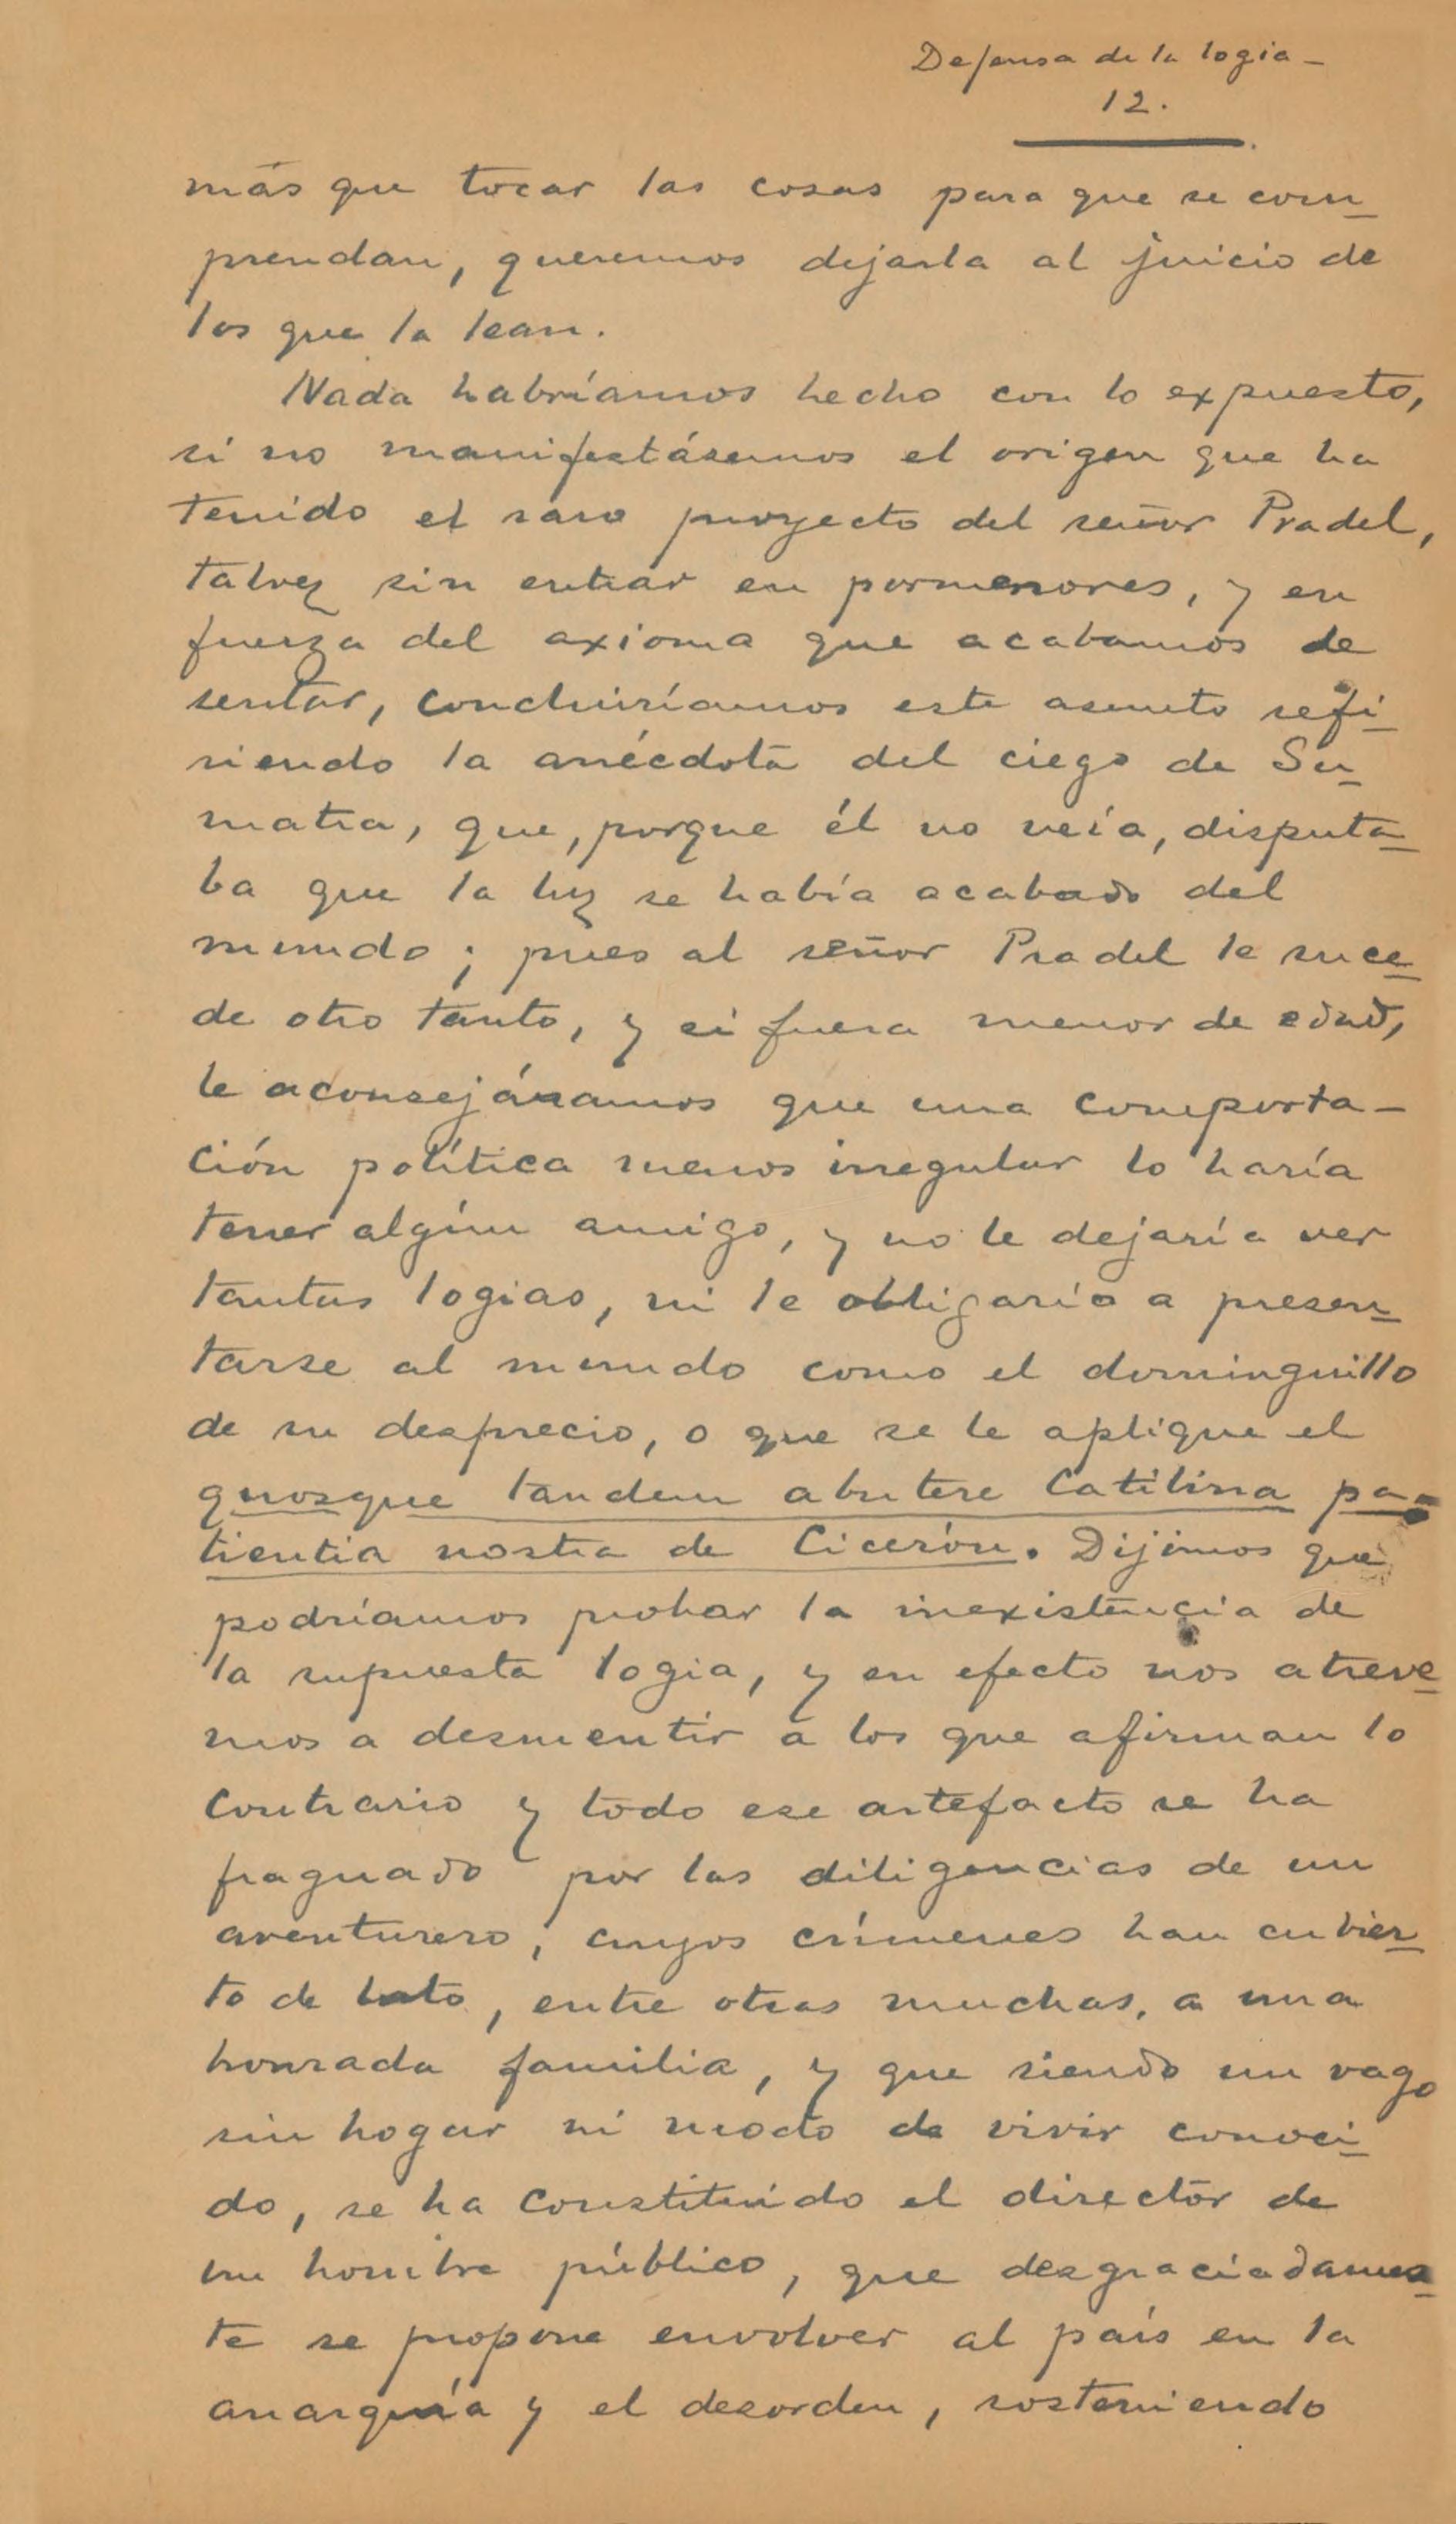 Defensa de la logia -
12.
más que tocar las cosas para que se com-
prendan, queremos dejarla al juicio de
los que la lean.
Nada habríamos hecho con lo expuesto,
si no manifestásemos el origen que ha
tenido el raro proyecto del señor Pradel,
talvez sin entrar en pormenores, y en
fuerza del axioma que acabamos de
sentar, concluiríamos este asunto refi-
riendo la anécdota del ciego de Su-
matra, que, porque él no veía, disputa-
ba que la luz se había acabado del
mundo; pues al señor Pradel le suce-
de otro tanto, y si fuera menor de edad,
le aconsejáramos que una comporta-
ción política menos irregular lo haría
tener algún amigo, y no le dejaría ver
tantas logias, ni le obligaría a presen-
tarse al mundo como el dominguillo
de su desprecio, o que se le aplique el
quosque tandem abutere Catilina pa-
tientia nostra de Cicerón. Dijimos que
podríamos probar la inexistencia de
la supuesta logia, y en efecto nos atreve-
mos a desmentir a los que afirman lo
contrario y todo ese artefacto se ha
fraguado por las diligencias de un
aventurero, cuyos crímenes han cubier-
to de luto, entre otras muchas, a una
honrada familia, y que siendo un vago
sin hogar ni modo de vivir conoci-
do, se ha constituido el director de
un hombre público, que desgraciadamen-
te se propone envolver al país en la
anarquía y el desorden, sosteniendo